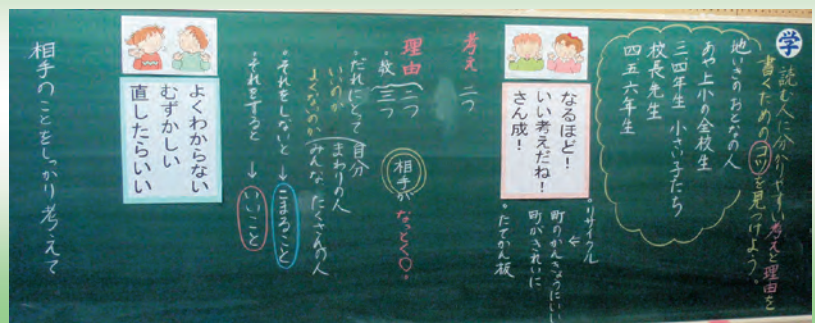 学
読む人に分かりやすい考えと理由を
書くためのコツを見つけよう。
地いきのおとなの人
あや上小の全校生
三四年生 小さい子たち
校長先生
四五六年生
なるほど!
いい考えだね!
さん成!
・リサイクル
町のかんきょうにいい
↓
町がきれいに
・たてかん板
考え 二つ
理由 二つ
・数 三つ
相手がなっとく○。
だれにとって 自分
いいのか まわりの人
よくなるのか みんな たくさんの人
・それをしないと → こまること
・それをすると → いいこと
よくわからない
むずかしい
直したらいい
相手のことをしっかり考えて